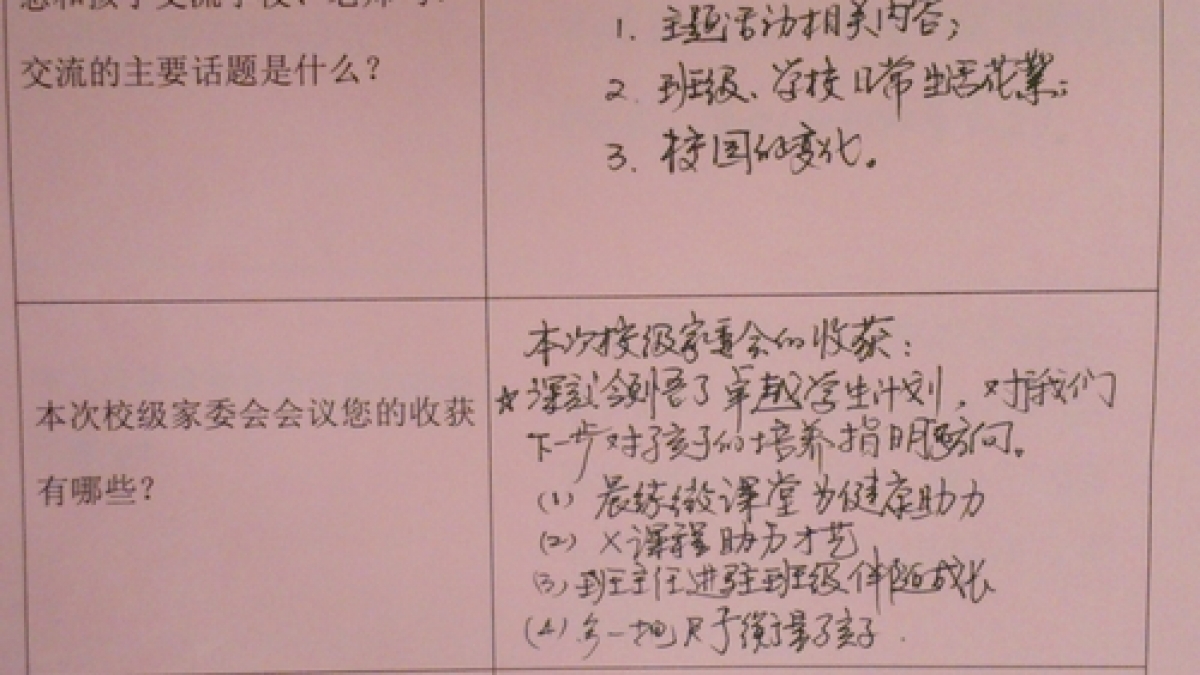 您和孩子交流学校、老师时
1. 主题活动相关内容;
交流的主要话题是什么?
2. 班级、学校日常生活花絮;
3. 校园的变化。
本次校级家委会的收获:
☆深刻领悟了卓越学生计划,对我们
本次校级家委会会议您的收获
下一步对孩子的培养指明方向。
有哪些?
(1) 晨练微课堂为健康助力
(2) X课程助力才艺
(3) 班主任进驻班级伴随成长
(4) 多一把尺子衡量孩子.